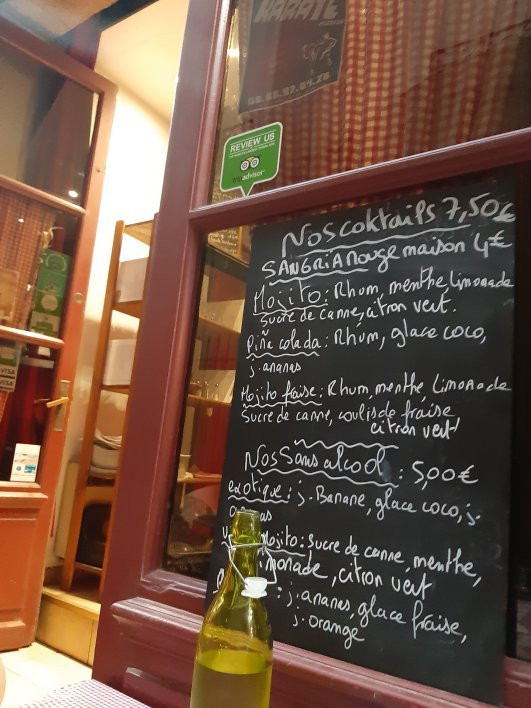 KARATE
REVIEW US
tripadvisor
VISA
Nos coktails 7,50€
SANGRIA Rouge maison 4€
Mojito: Rhum, menthe Limonade
Sucre de canne, citron vert.
Piña colada: Rhum, glace coco,
j. ananas
Mojito fraise: Rhum, menthe Limonade
Sucre de canne, coulis de fraise
citron vert
Nos Sans alcool : 5,00€
exotique: j. Banane, glace coco, j.
Mojito: Sucre de canne, menthe,
citron vert
: j. ananas, glace fraise,
j. orange